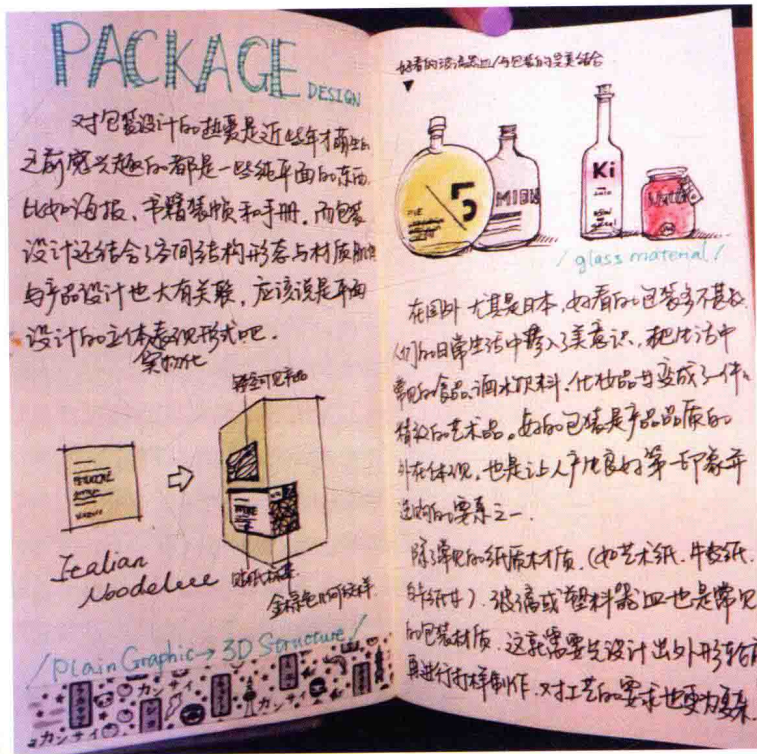 PACKAGE
DESIGN
对包装设计的热爱是近些年才萌生的
之前感兴趣的都是一些纯平面的东西,
比如海报、书籍装帧和手册。而包装
设计还结合了空间结构形态与材质肌理
与产品设计也大有关联,应该说是平面
设计的立体表现形式吧。
实物化
Italian
贴纸标签
/Plain Graphic→3D Structure/
カンサイ
カンサイ
カンサイ
好看的玻璃器皿/与包装的完美结合
5
MION
Ki
/glass material/
在国外 尤其是日本,好看的包装多不甚数
人们的日常生活中掺入了美意识,把生活中
常见的食品、酒水饮料、化妆品等变成了一件件
精致的艺术品。好的包装是产品品质的
外在体现,也是让人产生良好第一印象并
选购的要素之一.
除了常见的纸质木材质.(如艺术纸.牛皮纸.
卡纸等).玻璃或塑料器皿也是常见
的包装材质.这就需要先设计出外形轮廓
再进行打样制作.对工艺的要求也更为复杂.